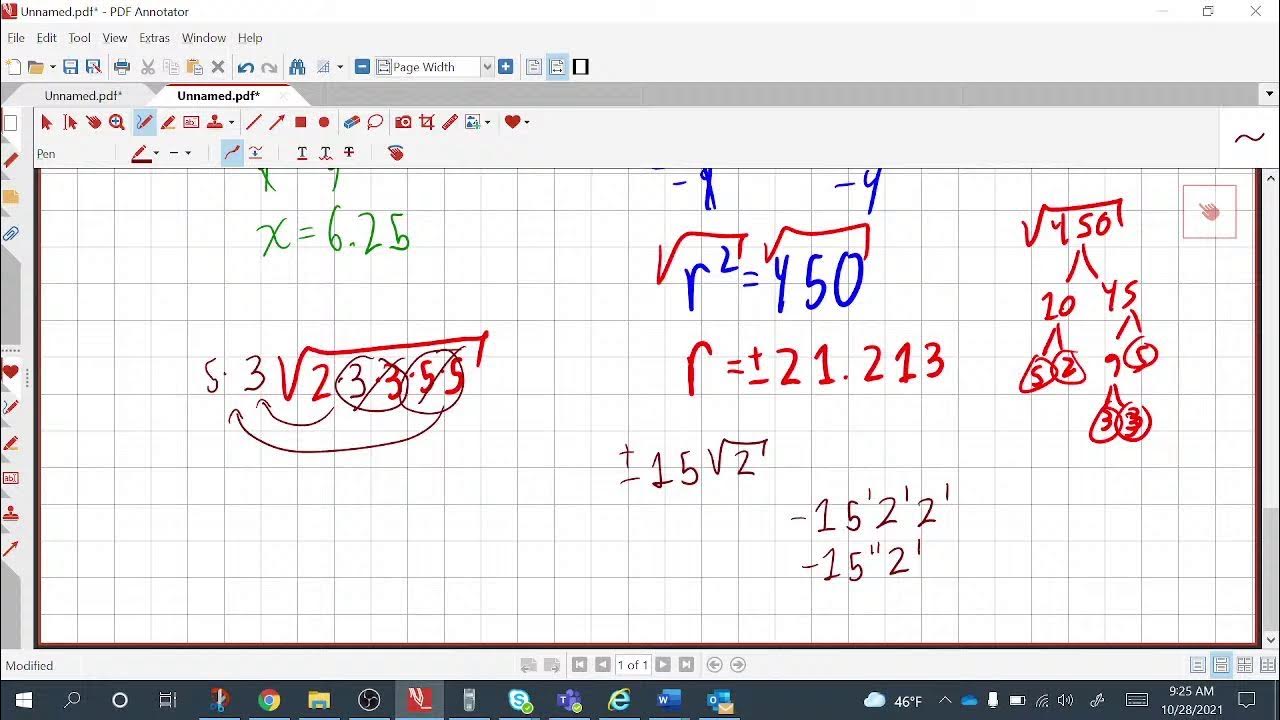 Unnamed.pdf* - PDF Annotator
File Edit Tool View Extras Window Help
Page Width
Unnamed.pdf* Unnamed.pdf*
Pen
-4 -4
x = 6.25
r² = 450
√450
20 45
5 2 9 5
3 3
r = ± 21.213
5 · 3 √2·3·3·5·5
± 15√2
-15'2'2'
-15"2'
Modified
1 of 1
46°F
9:25 AM
10/28/2021